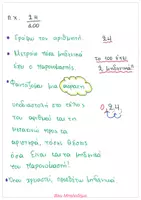 π.χ. 24
100
• Γράφω τον αριθμητή. 24
• Μετράω πόσα μηδενικά έχει ο παρονομαστής.
το 100 έχει 2 μηδενικά
• Φαντάζομαι μια αόρατη υποδιαστολή στο τέλος του αριθμού και τη μετακινώ προς τα αριστερά, τόσες θέσεις όσα είναι και τα μηδενικά του παρονομαστή.
0,24.
• Όπου χρειαστεί προσθέτω μηδενικά